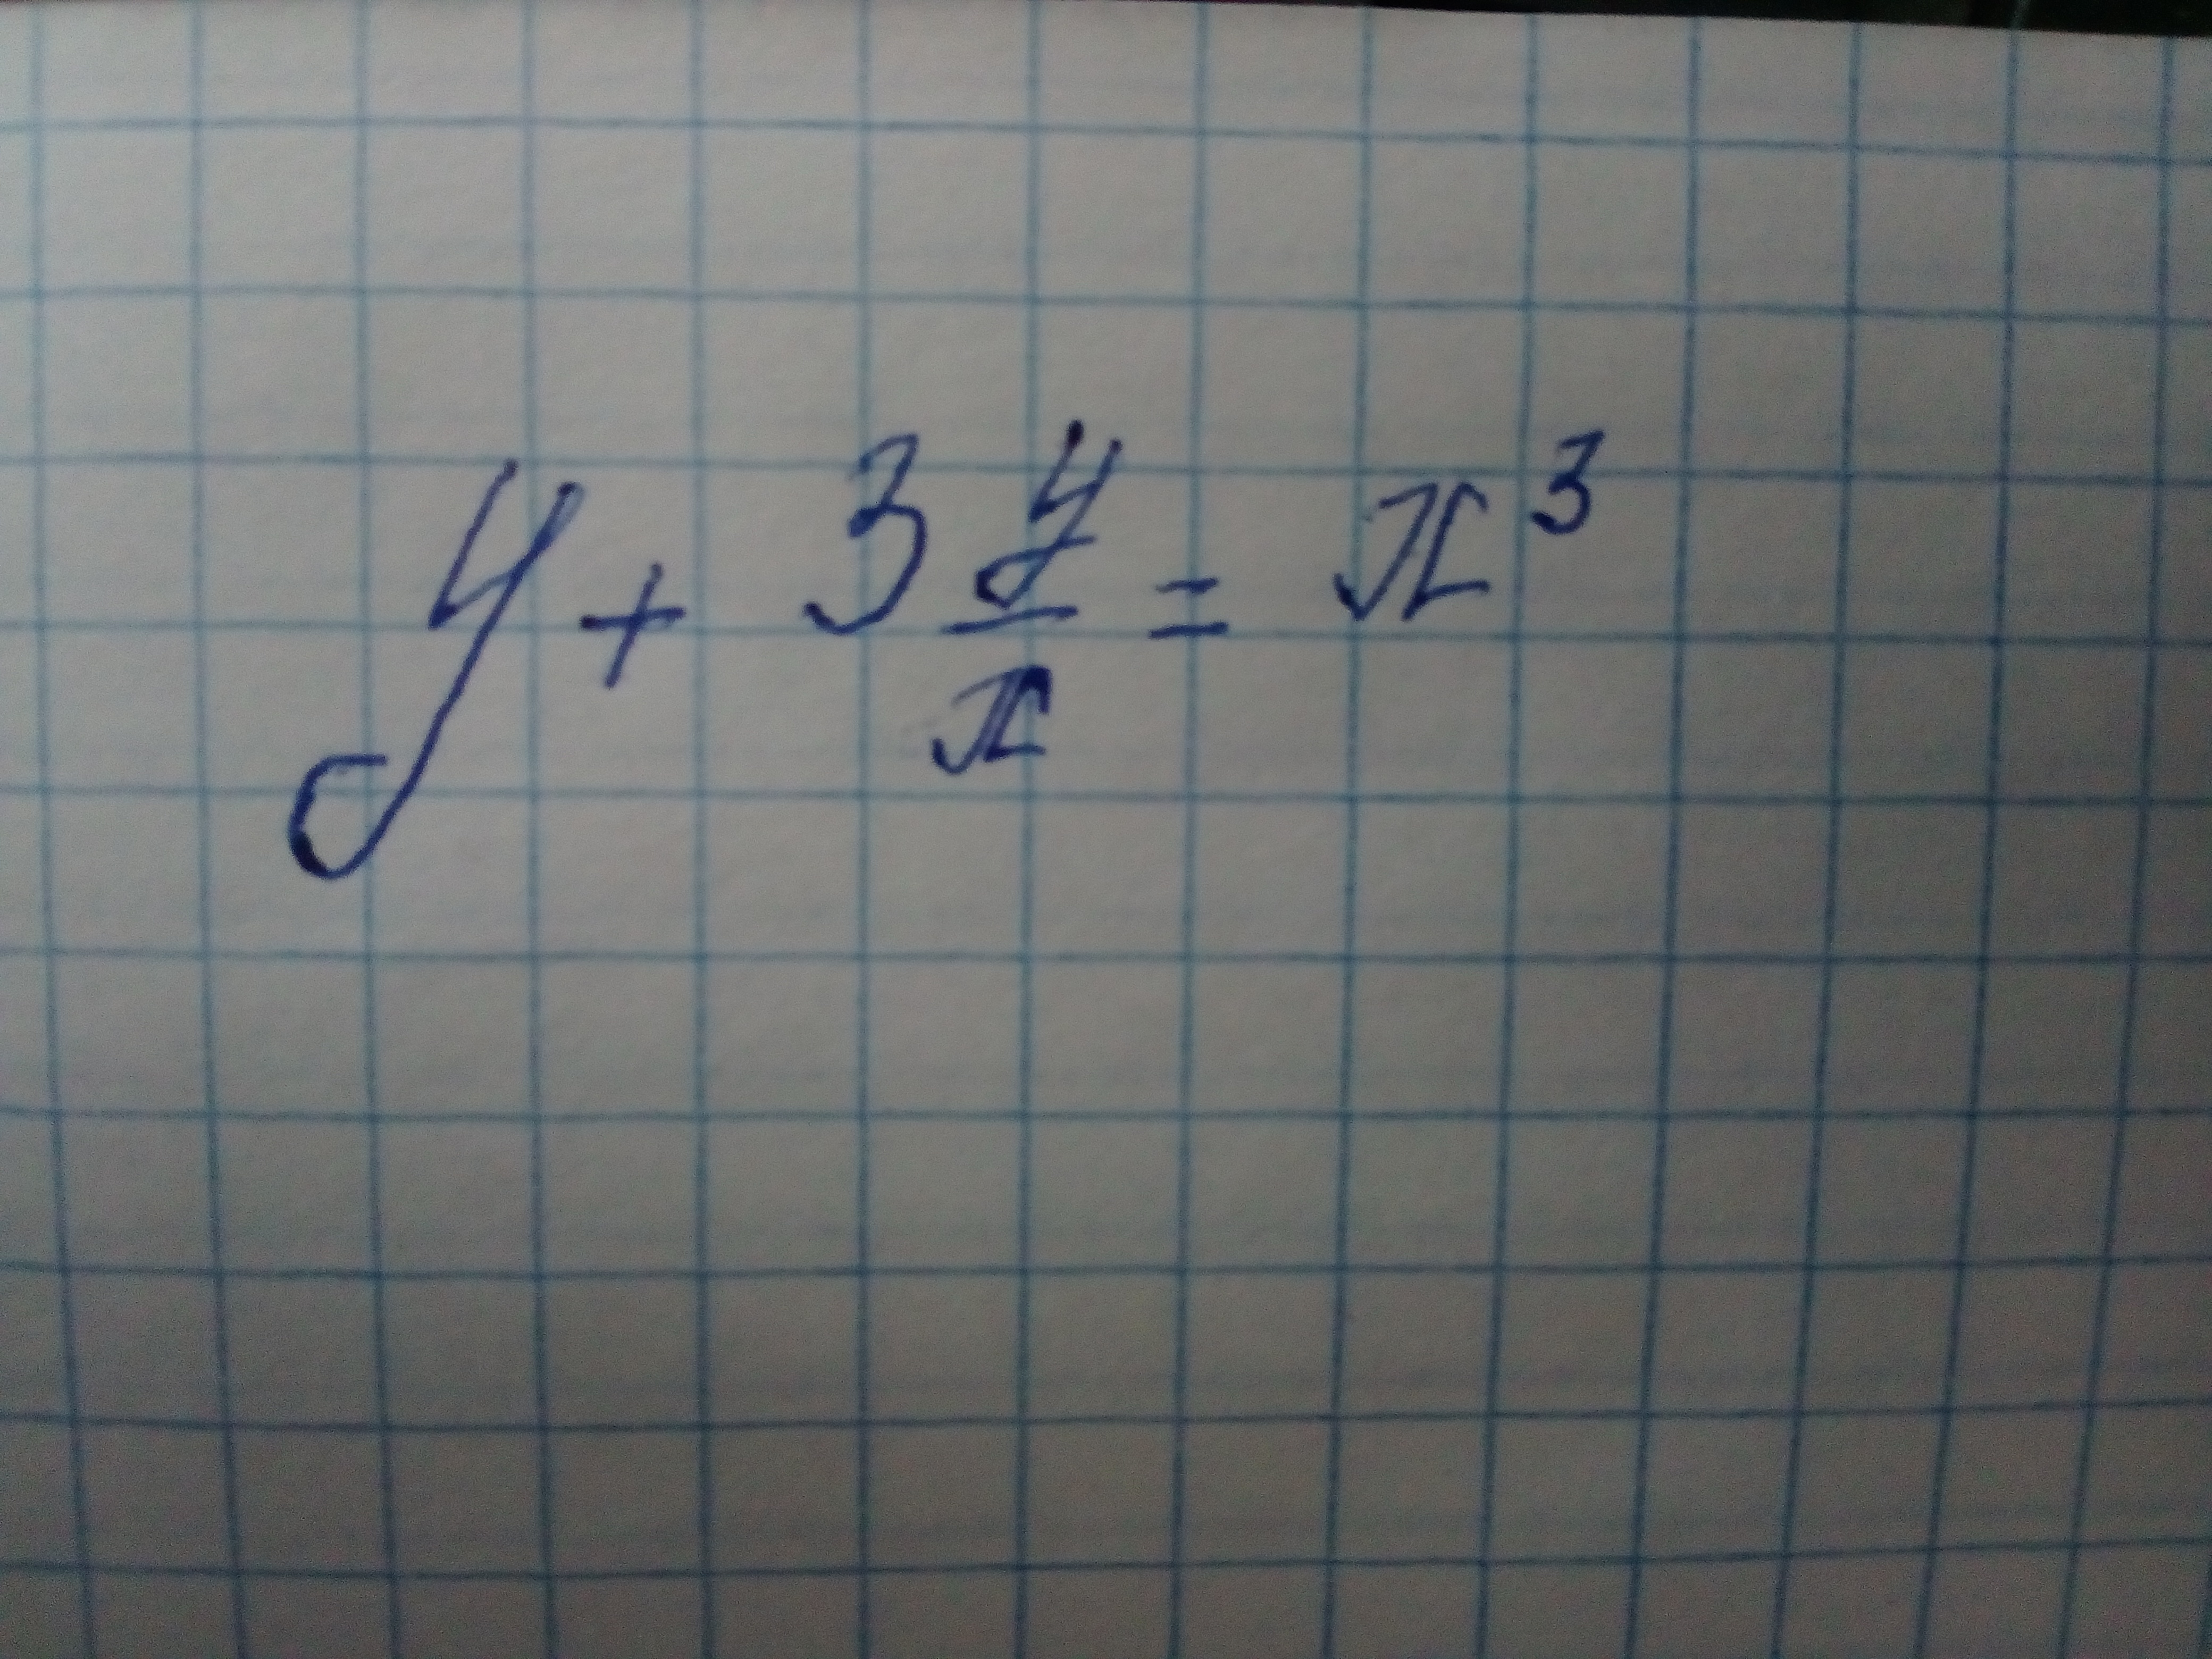 y + 3 y/x = x³